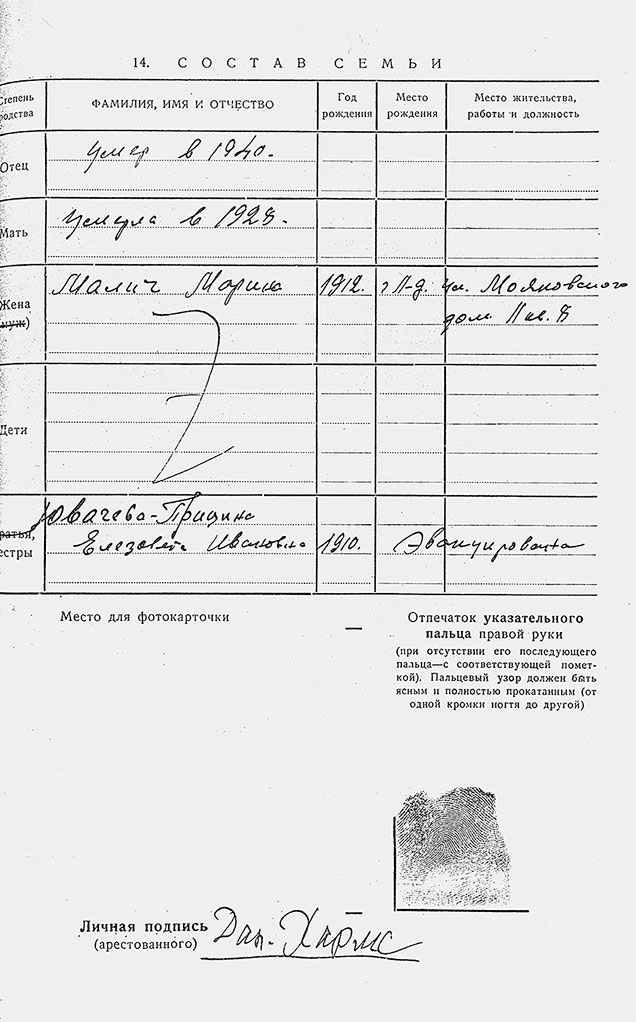 14. СОСТАВ СЕМЬИ
Степень родства
ФАМИЛИЯ, ИМЯ И ОТЧЕСТВО
Год рождения
Место рождения
Место жительства, работы и должность
Отец
умер в 1940.
Мать
Умерла в 1928.
Жена
(муж)
Малич Марина
1912.
г Л-д.
ул. Маяковского
дом 11 кв. 8
Дети
Братья,
сестры
Ювачева-Грицина
Елизовета Ивановна
1910.
Эвакуирована
Место для фотокарточки
—
Отпечаток указательного
пальца правой руки
(при отсутствии его последующего
пальца—с соответствующей помет-
кой). Пальцевый узор должен быть
ясным и полностью прокатанным (от
одной кромки ногтя до другой)
Личная подпись
(арестованного)
Дан. Хармс